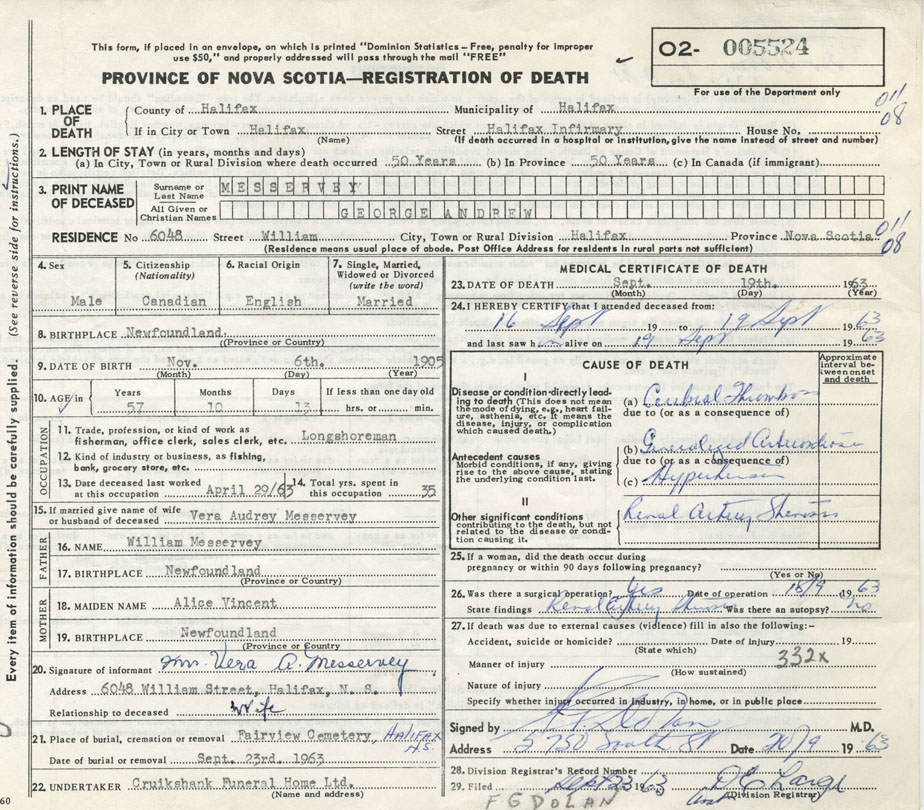 This form, if placed in an envelope, on which is printed "Dominion Statistics – Free, penalty for improper
use $50," and properly addressed will pass through the mail "FREE"
PROVINCE OF NOVA SCOTIA—REGISTRATION OF DEATH
02- 005524
For use of the Department only
011
08
1. PLACE OF DEATH
County of Halifax Municipality of Halifax
If in City or Town Halifax Street Halifax Infirmary House No.
(Name) (If death occurred in a hospital or institution, give the name instead of street and number)
2. LENGTH OF STAY (in years, months and days)
(a) In City, Town or Rural Division where death occurred 50 Years (b) In Province 50 Years (c) In Canada (if immigrant)
3. PRINT NAME OF DECEASED
Surname or Last Name MESSERVEY
All Given or Christian Names GEORGE ANDREW
RESIDENCE No 6048 Street William City, Town or Rural Division Halifax Province Nova Scotia
011
08
(Residence means usual place of abode. Post Office Address for residents in rural parts not sufficient)
4. Sex
Male
5. Citizenship
(Nationality)
Canadian
6. Racial Origin
English
7. Single, Married,
Widowed or Divorced
(write the word)
Married
8. BIRTHPLACE Newfoundland.
(Province or Country)
9. DATE OF BIRTH Nov. 6th. 1905
(Month) (Day) (Year)
10. AGE in
Years Months Days If less than one day old
57 10 13 hrs. or min.
OCCUPATION
11. Trade, profession, or kind of work as
fisherman, office clerk, sales clerk, etc. Longshoreman
12. Kind of industry or business, as fishing,
bank, grocery store, etc.
13. Date deceased last worked
at this occupation April 29/63
14. Total yrs. spent in
this occupation 35
15. If married give name of wife
or husband of deceased Vera Audrey Messervey
FATHER
16. NAME William Messervey
17. BIRTHPLACE Newfoundland
(Province or Country)
MOTHER
18. MAIDEN NAME Alice Vincent
19. BIRTHPLACE Newfoundland
(Province or Country)
20. Signature of informant Mrs. Vera A. Messervey
Address 6048 William Street, Halifax, N. S.
Relationship to deceased Wife
21. Place of burial, cremation or removal Fairview Cemetery, HALIFAX
N.S.
Date of burial or removal Sept. 23rd. 1963
22. UNDERTAKER Cruikshank Funeral Home Ltd.
(Name and address)
60
Every item of information should be carefully supplied. (See reverse side for instructions.)
MEDICAL CERTIFICATE OF DEATH
23. DATE OF DEATH Sept. 19th. 1963
(Month) (Day) (Year)
24. I HEREBY CERTIFY that I attended deceased from:
16 Sept 19 to 19 Sept 1963
and last saw him alive on 19 Sept 1963
CAUSE OF DEATH
Approximate
interval be-
tween onset
and death
I
Disease or condition directly lead-
ing to death (This does not mean
the mode of dying, e.g., heart fail-
ure, asthenia, etc. It means the
disease, injury, or complication
which caused death.)
(a) Cerebral Thrombosis
due to (or as a consequence of)
Antecedent causes
Morbid conditions, if any, giving
rise to the above cause, stating
the underlying condition last.
(b) Generalized Arteriosclerosis
due to (or as a consequence of)
(c) Hypertension
II
Other significant conditions
contributing to the death, but not
related to the disease or condi-
tion causing it.
Renal Artery Stenosis
25. If a woman, did the death occur during
pregnancy or within 90 days following pregnancy?
(Yes or No)
26. Was there a surgical operation? Yes Date of operation 18/9 1963
State findings Renal Artery Stenosis Was there an autopsy? no
27. If death was due to external causes (violence) fill in also the following:–
Accident, suicide or homicide? Date of injury 19
(State which)
Manner of injury 332x
(How sustained)
Nature of injury
Specify whether injury occurred in industry, in home, or in public place
Signed by F G Dolan M.D.
Address 5750 South St Date 20/9 1963
28. Division Registrar's Record Number
29. Filed Sept 23 1963
(Division Registrar)
F G DOLAN